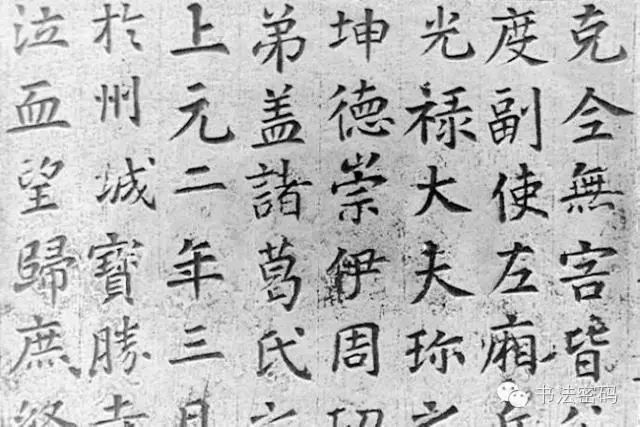 克全無害皆公
度副使左廂兵
光禄大夫珎之
坤德崇伊周
弟盖諸葛氏之
上元二年三月
於州城寶勝寺
泣血望歸庶
书法密码